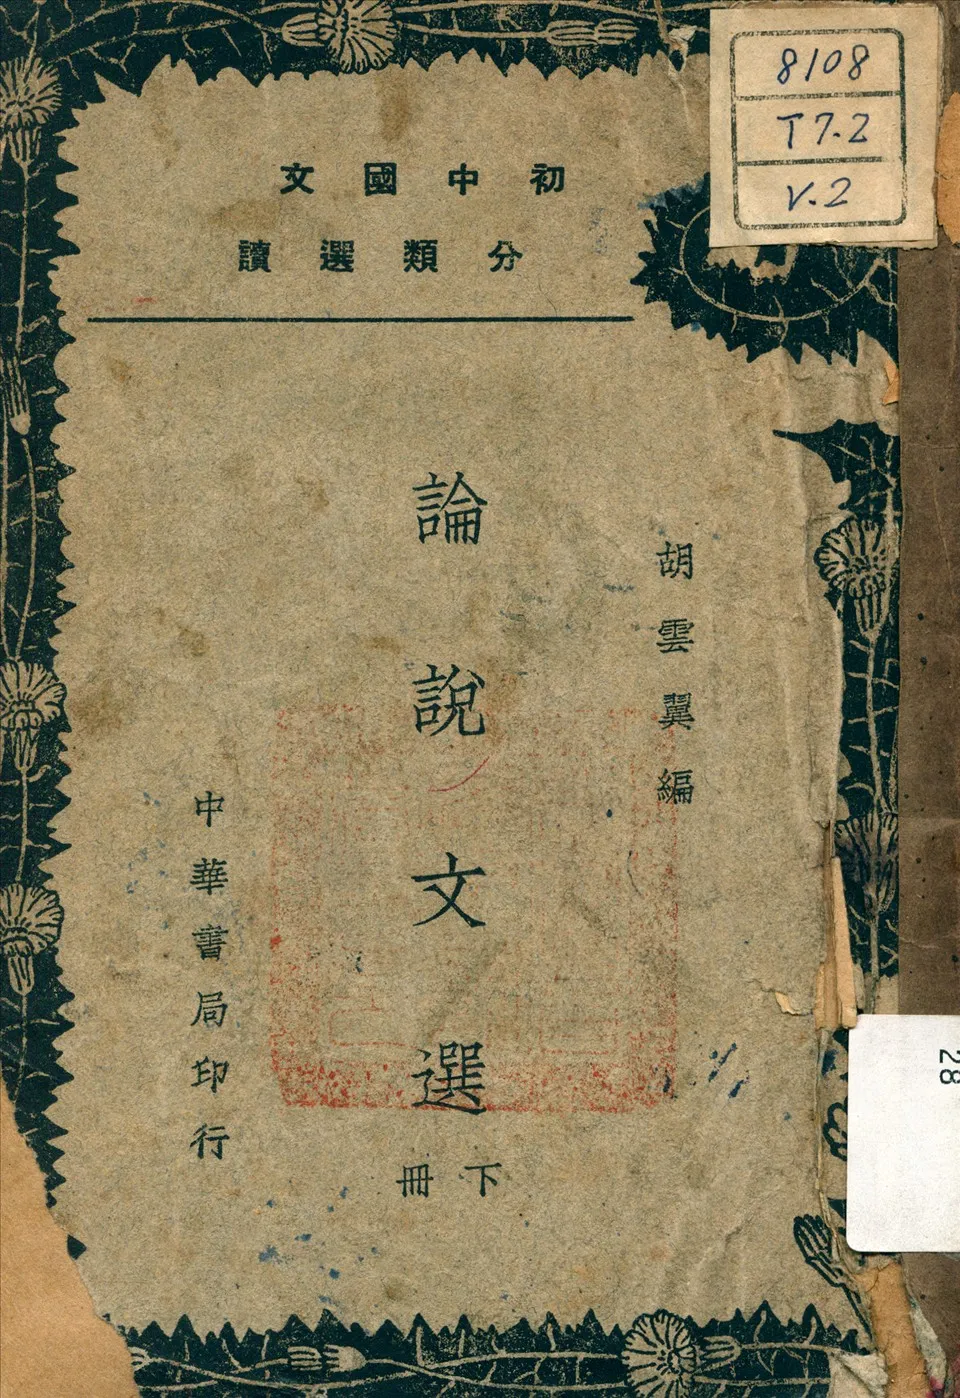 8108
T7.2
V.2
初中國文
分類選讀
胡雲翼編
論說文選
下冊
中華書局印行
28